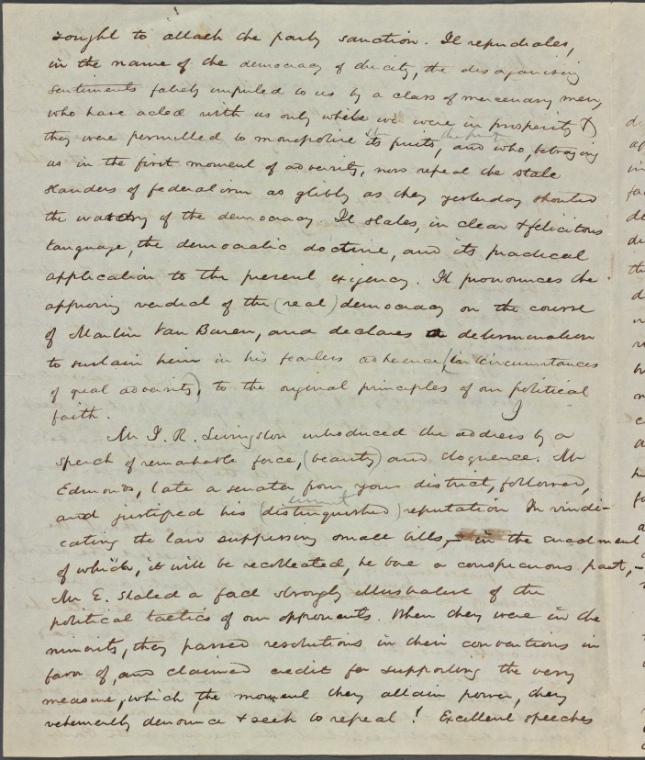 sought to attach the party sanction. It repudiates,
in the name of the democracy of the city, the disorganising
sentiments falsely imputed to us by a class of mercenary men,
who have acted with us only while we were in prosperity &
they were permitted to monopolize its fruits, and who, betraying
us in the first moment of adversity, now repeat the stale
slanders of federalism as glibly as they yesterday shouted
the watchcry of the democracy. It states, in clear & felicitous
language, the democratic doctrine, and its practical
application to the present exigency. It pronounces the
approving verdict of the (real) democracy on the course
of Martin Van Buren, and declares a determination
to sustain him in his fearless adherence, (in circumstances
of great adversity), to the original principles of our political
faith.
Mr J. R. Livingston introduced the address by a
speech of remarkable force, (beauty) and eloquence. Mr
Edmonds, late a senator from your district, followed,
and justified his (distinguished) reputation. In vindi-
cating the law suppressing small bills, – in the enactment
of which, it will be recollected, he bore a conspicuous part, –
Mr E. stated a fact strongly illustrative of the
political tactics of our opponents. When they were in the
minority, they passed resolutions in their conventions in
favor of, and claimed credit for supporting the very
measure, which, the moment they attain power, they
vehemently denounce & seek to repeal! Excellent speeches